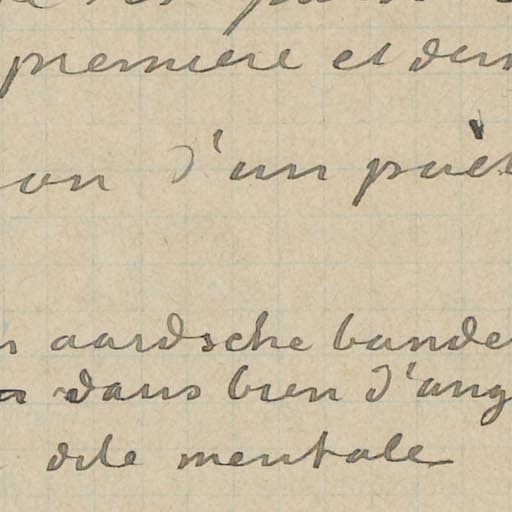 premiere et der
on d'un poèt
aardsche bande
dans bien d'ang
mentale